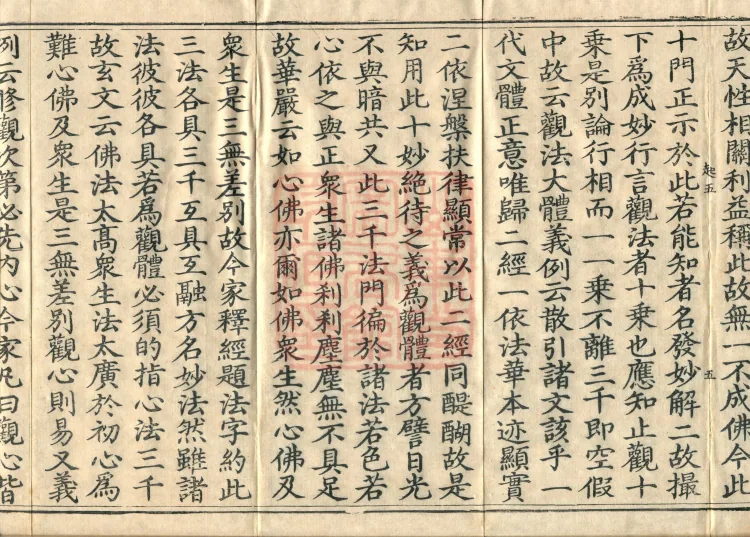 故天性相關利益稱此故無一不成佛今此
十門正示於此若能知者名發妙解二故撮
下爲成妙行言觀法者十乘也應知止觀十
乘是別論行相而一一乘不離三千即空假
中故云觀法大體義例云散引諸文該乎一
代文體正意唯歸二經一依法華本迹顯實
二依涅槃扶律顯常以此二經同醍醐故是
知用此十妙絶待之義爲觀體者方譬日光
不與暗共又此三千法門徧於諸法若色若
心依之與正衆生諸佛刹刹塵塵無不具足
故華嚴云如心佛亦爾如佛衆生然心佛及
衆生是三無差別故今家釋經題法字約此
三法各具三千互具互融方名妙法然雖諸
法彼彼各具若爲觀體必須的指心法三千
故玄文云佛法太髙衆生法太廣於初心爲
難心佛及衆生是三無差別觀心則易又義
例云修觀次第必先内心今家凡曰觀心皆
起五
五